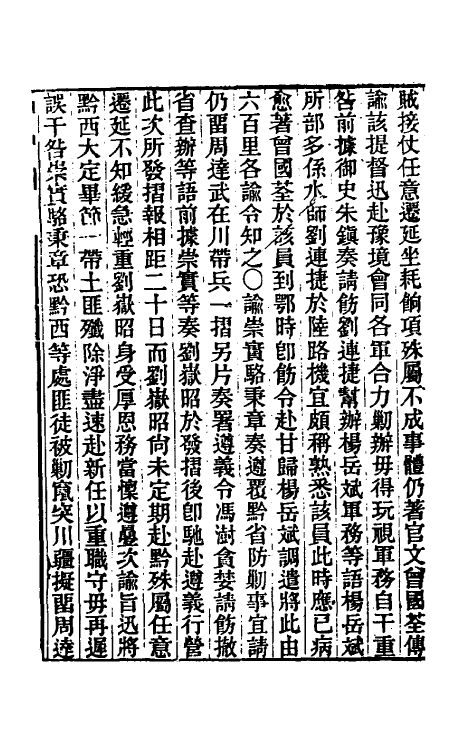 賊接仗任意遷延坐耗餉項殊屬不成事體仍著官文曾國荃傳
諭該提督迅赴豫境會同各軍合力勦辦毋得玩視軍務自干重
咎前據御史朱鎮奏請飭劉連捷幫辦楊岳斌軍務等語楊岳斌
所部多係水師劉連捷於陸路機宜頗稱熟悉該員此時應已病
愈著曾國荃於該員到鄂時卽飭令赴甘歸楊岳斌調遣將此由
六百里各諭令知之○諭崇實駱秉章奏遵覆黔省防勦事宜請
仍留周達武在川帶兵一摺另片奏署遵義令馮澍貪婪請飭撤
省查辦等語前據崇實等奏劉嶽昭於發摺後卽馳赴遵義行營
此次所發摺報相距二十日而劉嶽昭尚未定期赴黔殊屬任意
遷延不知緩急輕重劉嶽昭身受厚恩務當懍遵疊次諭旨迅將
黔西大定畢節一帶土匪殲除淨盡速赴新任以重職守毋再遲
誤干咎崇實駱秉章恐黔西等處匪徒被勦竄突川疆擬留周達